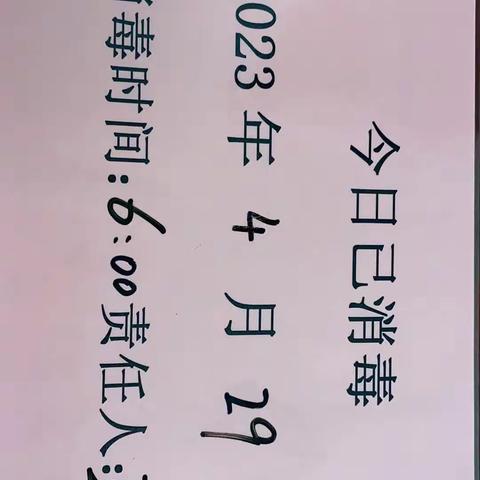 今日已消毒
023年 4 月 29
毒时间:6:00责任人: